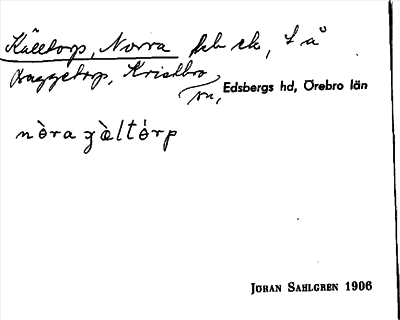 Källtorp, Norra
Daggetorp, Kristbro
sn, Edsbergs hd, Örebro län
nòra gæ̀ltórp
JÖRAN SAHLGREN 1906